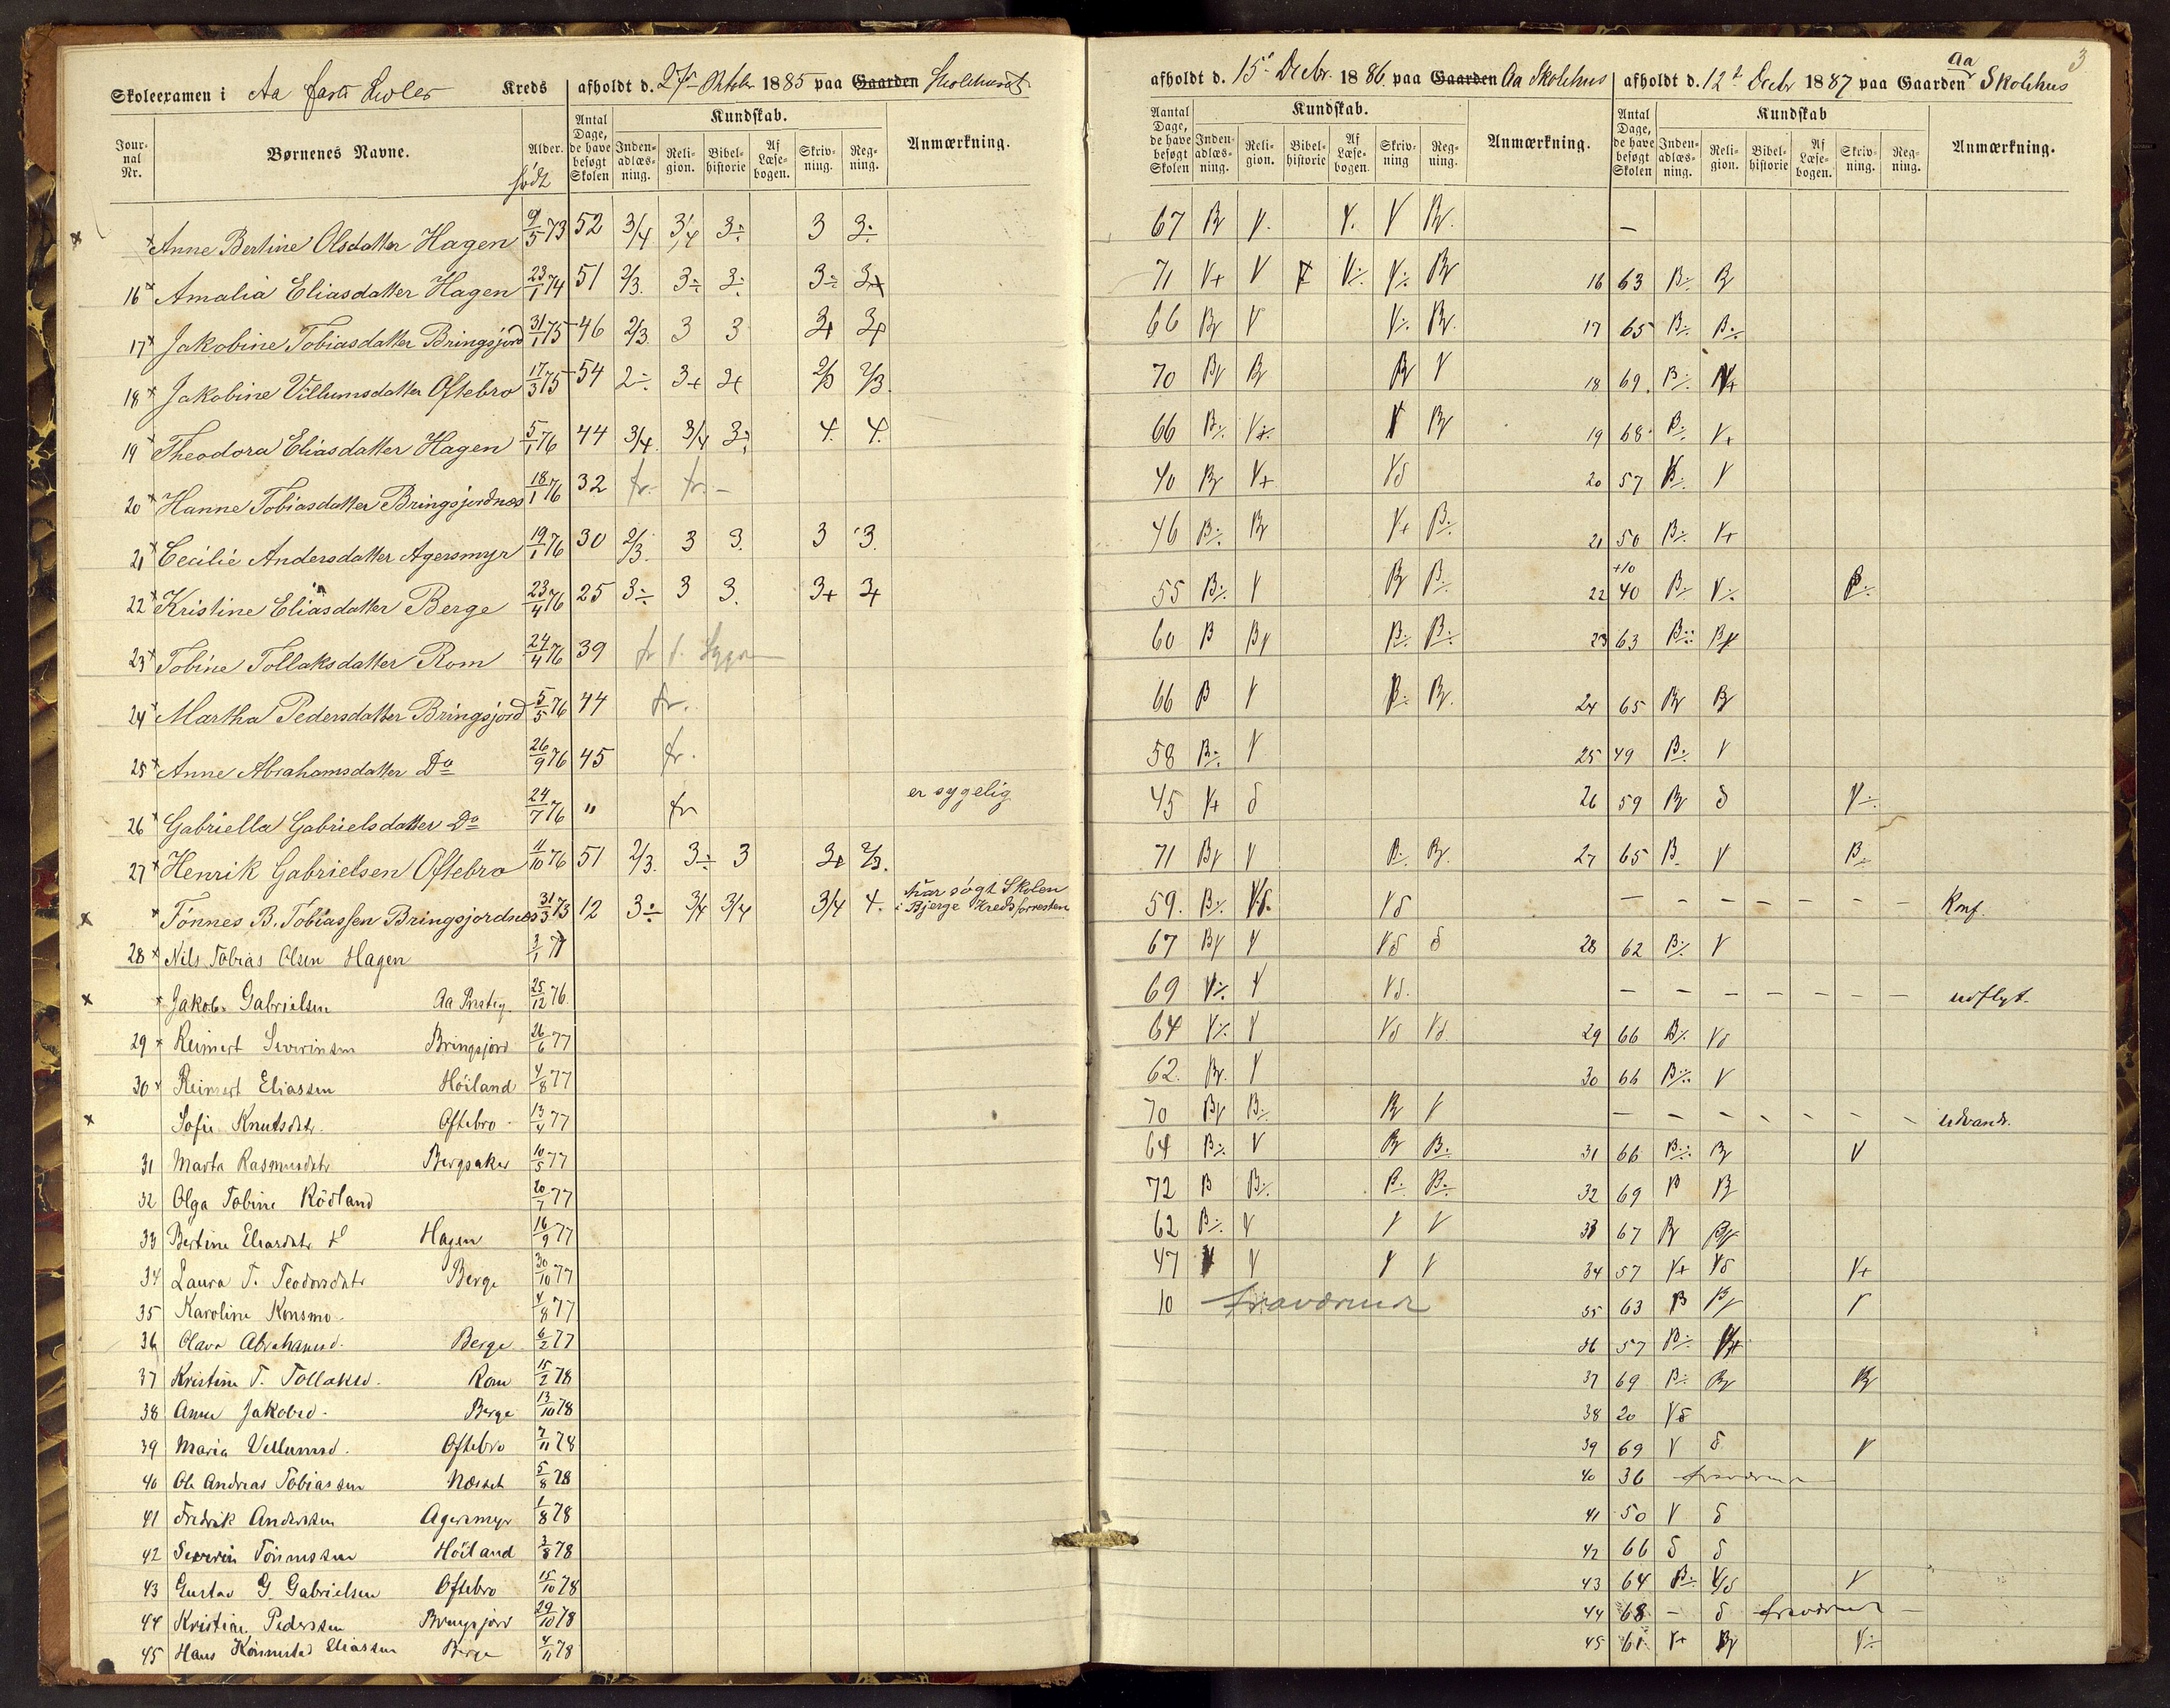 3
Skoleexamen i Aa faste Skoles Kreds afholdt d. 27 Oktober 1885 paa Gaarden Skolehuset
afholdt d. 15de Decbr. 1886 paa Gaarden Aa Skolehus afholdt d. 12te Decbr 1887 paa Gaarden Aa Skolehus
Journal Nr. Børnenes Navne. Alder. født Antal Dage, de have besøgt Skolen Kundskab. Indenadlæsning. Religion. Bibelhistorie Af Læsebogen. Skrivning. Regning. Anmærkning.
Aantal Dage, de have besøgt Skolen Kundskab. Indenadlæsning. Religion. Bibelhistorie Af Læsebogen. Skrivning Regning. Anmærkning.
Antal Dage, de have besøgt Skolen Kundskab Indenadlæsning. Religion. Bibelhistorie Af Læsebogen. Skrivning. Regning. Anmærkning.
x x Anne Bertine Olsdatter Hagen 9/5 73 52 3/4 3/4 3÷ 3 3÷ 67 BV V. V. V BV. –
16 x Amalia Eliasdatter Hagen 23/1 74 51 2/3. 3÷ 3÷ 3÷ 3+ 71 V+ V V V÷ V÷ BV 16 63 B÷ BV
17 x Jakobine Tobiasdatter Bringsjord 31/1 75 46 2/3. 3 3 3+ 3+ 66 BV V V÷ BV. 17 65 B÷ B÷
18 x Jakobine Villumsdatter Oftebro 17/3 75 54 2÷ 3+ 3+ 2/3 2/3. 70 BV BV BV V 18 69. B÷ V+
19 x Theodora Eliasdatter Hagen 5/1 76 44 3/4. 3/4 3÷ 4. 4. 66 B÷ V÷ V BV 19 68 B÷ V+
20 x Hanne Tobiasdatter Bringsjordnes 18/1 76 32 fr. fr. – 40 BV V+ Vδ 20 57 B÷ V
21 x Cecilie Andersdatter Agersmyr 19/1 76 30 2/3. 3 3. 3 3. 46 B÷ BV V+ B÷ 21 50 B÷ V+
22 x Kristine Eliasdatter Berge 23/4 76 25 3÷ 3 3. 3+ 3+ 55 B÷ V BV B÷ 22 +10 40 B÷ V÷ B÷
23 x Tobine Tollaksdatter Rom 24/4 76 39 fr 60 B BV B÷ B÷ 23 63 B÷ BV
24 x Martha Pedersdatter Bringsjord 5/5 76 44 fr. 66 B V B÷ BV. 24 65 BV BV
25 x Anne Abrahamsdatter Do 26/9 76 45 fr. 58 B÷ V 25 49 B÷ V
26 x Gabriella Gabrielsdatter Do 24/7 76 " fr er sygelig 45 V+ δ 26 59 BV δ V÷
27 x Henrik Gabrielsen Oftebro 11/10 76 51 2/3. 3÷ 3 3+ 2/3. 71 BV V B÷ BV. 27 65 B V B÷
x x Tønnes B. Tobiassen Bringsjordnes 31/3 73 12 3÷ 3/4 3/4 3/4 4. har søgt Skolen
i Bjerge Kreds forresten 59. B÷ Vδ. Vδ – – – – – – – Konf.
28 x Nils Tobias Olsen Hagen 3/1 77 67 BV V Vδ δ 28 62 B÷ V
x x Jakob Gabrielsen Aa Prsteg. 25/12 76 69 V÷ V Vδ. – – – – – – – udflyt.
29 x Reimert Severinsen Bringsjord 26/6 77 64 V÷ V Vδ Vδ 29 66 B÷ Vδ
30 x Reimert Eliassen Höiland 4/8 77 62. BV. V 30 66 B÷ V
x Sofie Knutsdtr. Oftebro 13/4 77 70 BV B÷ BV V – – – – – – – udvandr.
31 Marta Rasmusdtr Bergsaker 10/5 77 64 B÷ V BV B÷ 31 66 B÷ BV V
32 Olga Tobine Rödland 20/7 77 72 B B÷ B÷ B÷ 32 69 B BV
33 Bertine Eliasdatr Hagen 16/9 77 62 B÷ V V V 33 67 BV BV
34 Laura T. Teodorsdatr Berge 30/10 77 47 V V V V 34 57 V+ Vδ V+
35 Karoline Konsmo 4/8 77 10 fraværende 35 63 B BV V
36 Olava Abrahamsd. Berge 6/2 77 36 57 B÷ V+
37 Kristine T. Tollaksd. Rom 15/2 78 37 69 B÷ BV BV
38 Anne Jakobsd. Berge 13/10 78 38 20 Vδ
39 Maria Villumsd. Oftebro 7/11 78 39 69 V δ V
40 Ole Andreas Tobiassen Næsset 5/8 78 40 36 fraværende
41 Fredrik Anderssen Agersmyr 1/8 78 41 50 V δ
42 Severin Tönnessen Höiland 3/8 78 42 66 δ δ
43 Gustav G. Gabrielsen Oftebro 15/10 78 43 64 B÷ V/δ V
44 Kristian Pederssen Bringsjord 29/10 78 44 68 – δ fraværende –
45 Hans Eliassen Berge 4/11 78 45 61 V+ BV V÷